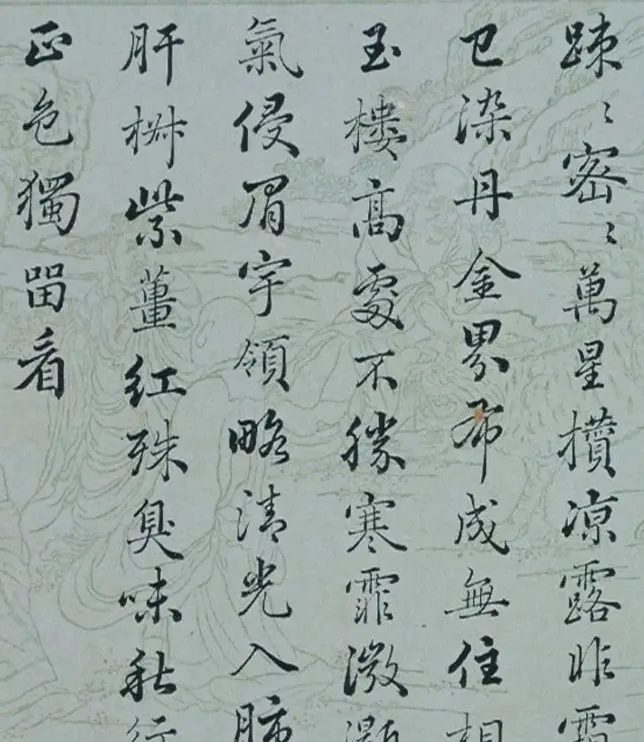 踈〻密〻萬星攢凉露昨
已染丹金界布成無住相
玉樓高處不勝寒霏微灝
氣侵眉宇領略清光入肺
肝椒紫薑紅殊臭味秋
正色獨畱看